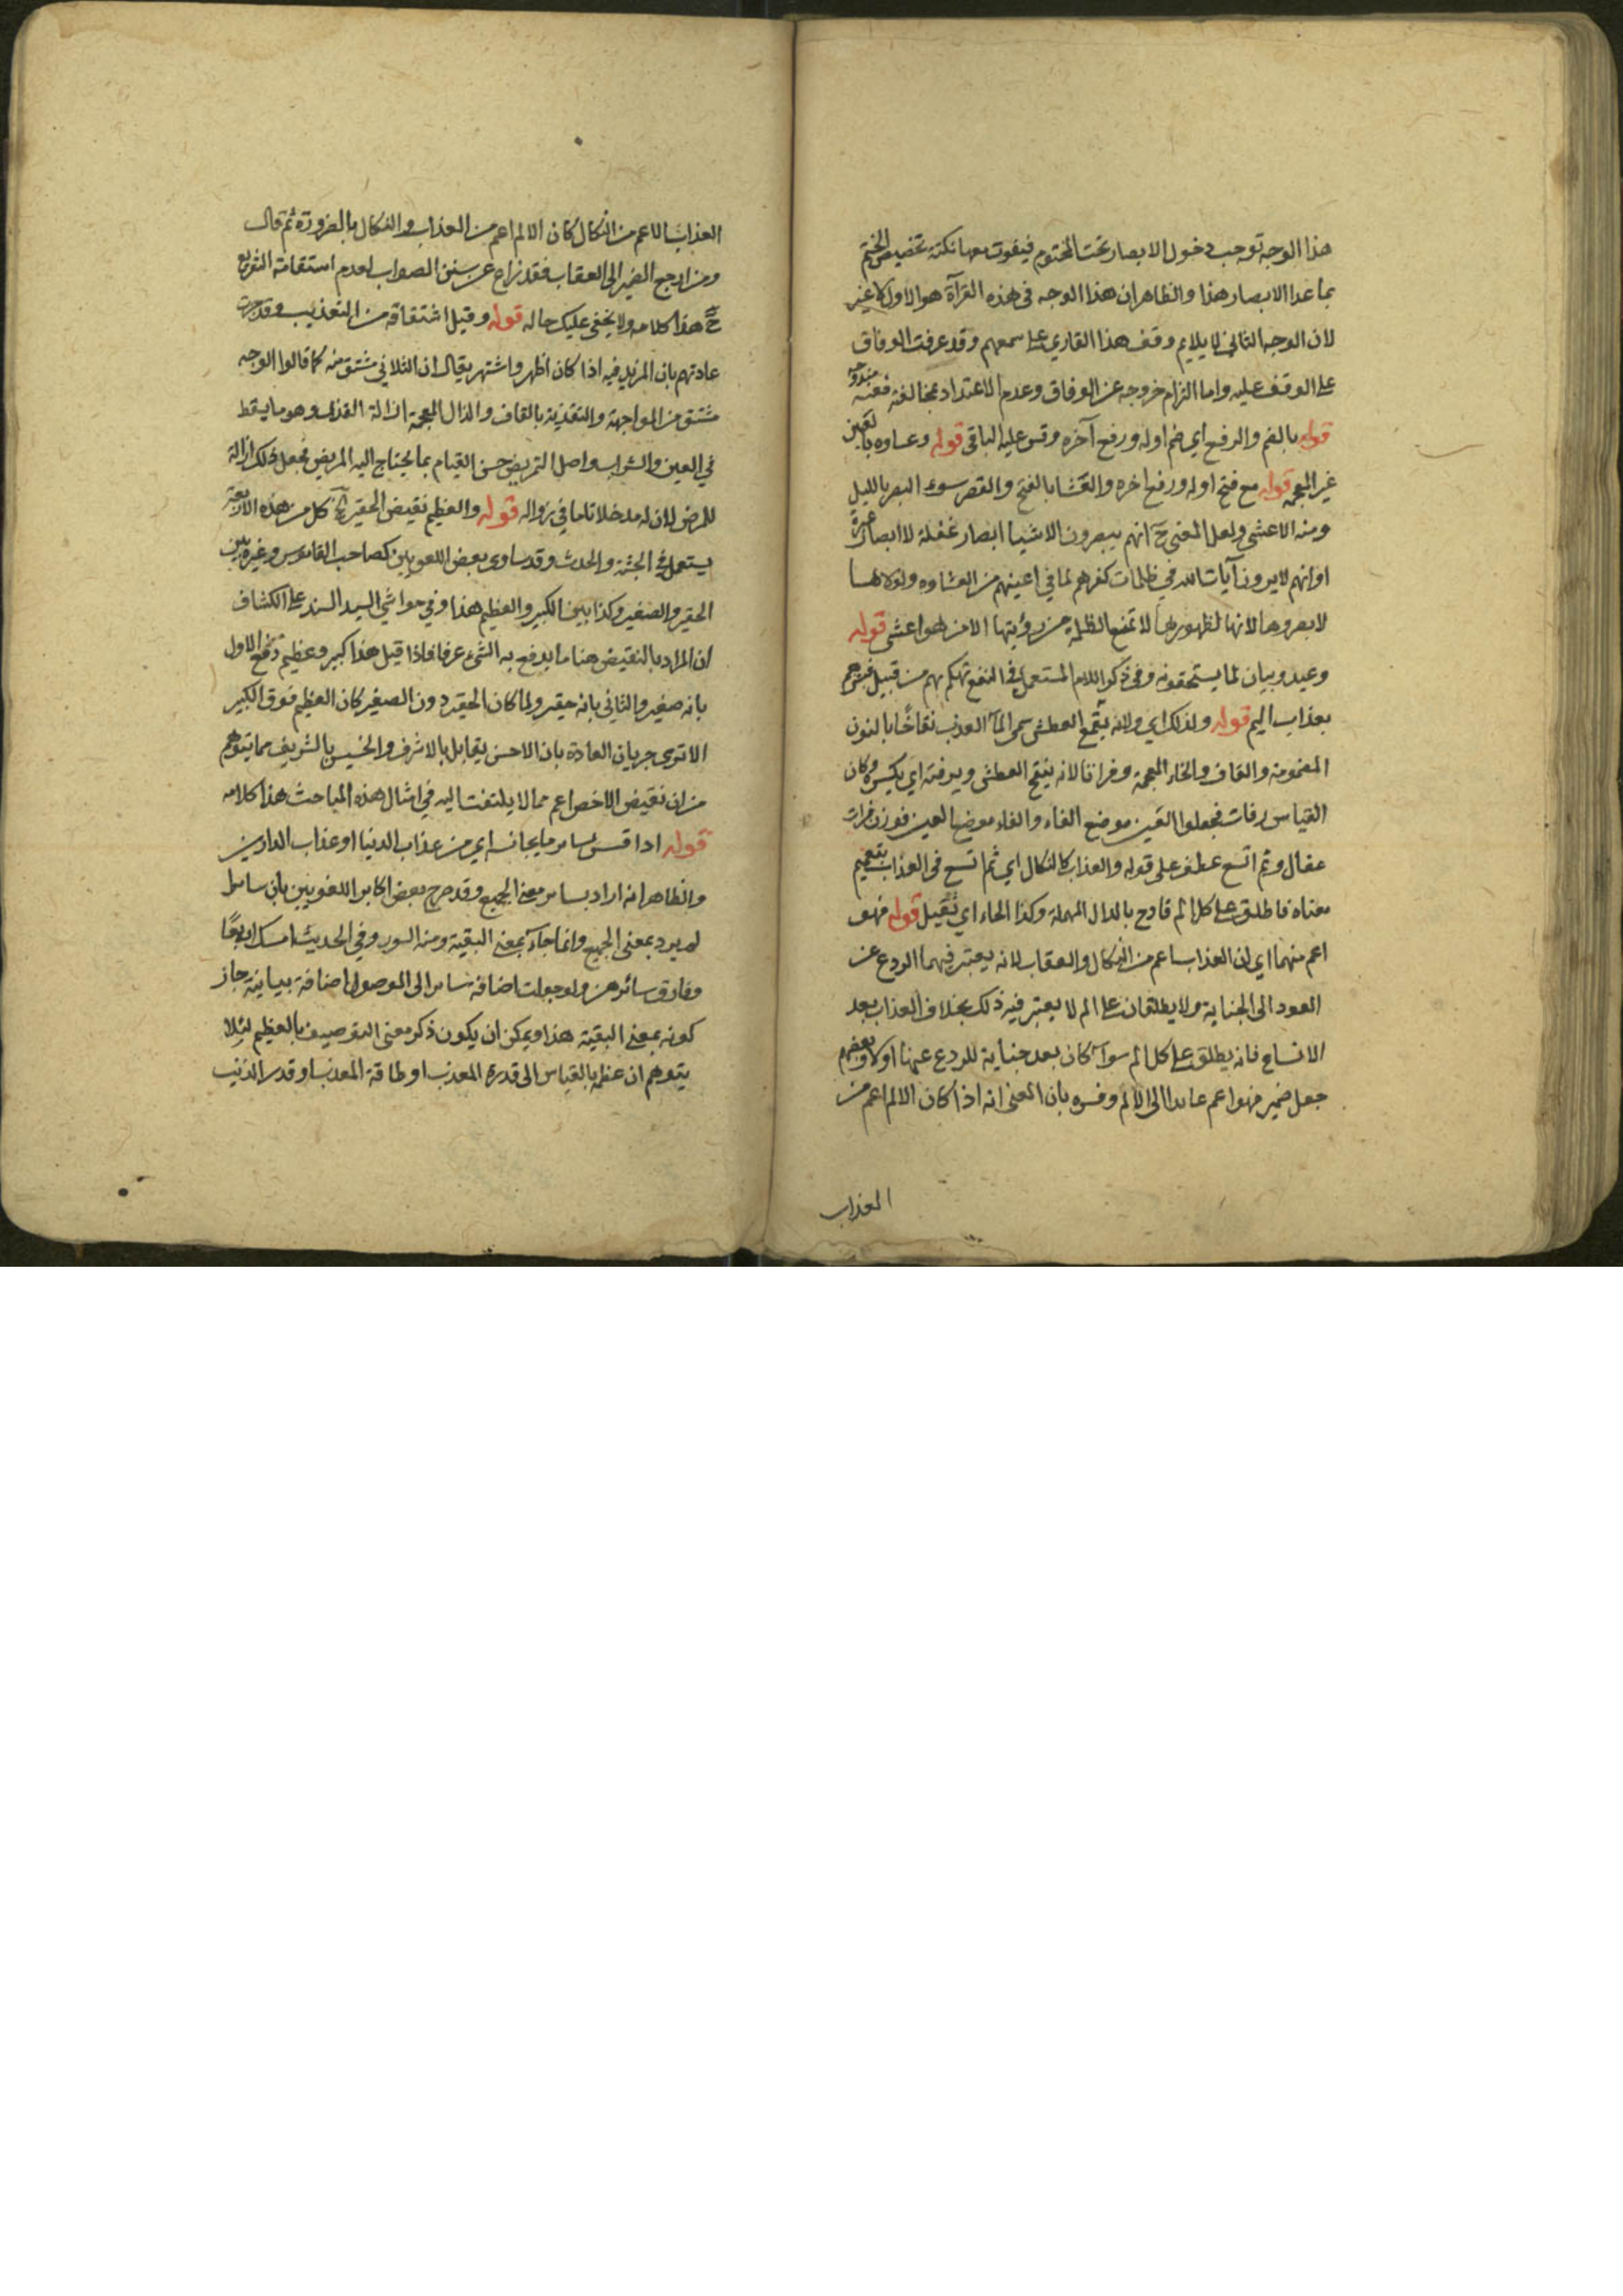 هذا الوجه توجب دخول الابصار تحت المختوم فيفوت معها نكتة تخصيص الختم
بما عدا الابصار هذا والظاهر ان هذا الوجه فى هذه القرآة هو الاول لا غير
لان الوجه الثانى لا يلايم وقف هذا القاري على سمعهم وقد عرفت الوفاق
على الوقف عليه واما التزام خروجه عن الوفاق وعدم الاعتداد بمخالفته فعنه مندوحة
قوله بالضم والرفع اي ضم اوله ورفع آخره وقس عليه الباقى قوله وعساوه بالعين
غير المعجمه قوله مع فتح اوله ورفع اخره والعَشَا بالفتح والقصر سوء البصر بالليل
ومنه الاعشى ولعل المعنى ح انهم يبصرون الاشيا ابصار غفلة لا ابصار عبرة
او انهم لا يرون آيات الله في ظلمات كفرهم لما في اعينهم من العشاوه ولولاها
لابصروها لانها لظهورها لا تمنع الظلمة من رؤيتها الا من هو اعشى قوله
وعيد وبيان لما يستحقونه وفى ذكر اللام المستعمل فى النفع تهكم بهم من قبيل فبشرهم
بعذاب اليم قوله ولذلك اي ولانه يقمع العطش سمى المآ العذب نقاخًا بالنون
المضمومة والقاف والخاء المعجمة وفراتا لانه ينقخ العطش ويرفته اي يكسره وكان
القياس رفات فجعلوا العين موضع الفاء والفاء موضع العين فوزن فرات
عفال وثم اتسع عطف على قوله والعذاب كالنكال اي ثم اتسع فى العذاب بتعميم
معناه فاطلق على كل الم فادح بالدال المهملة وكذا الحاء اي ثقيل قوله فهو
اعم منهما اي لان العذاب اعم من النكال والعقاب لانه يعتبر فيهما الردع عن
العود الى الجناية ولا يطلقان على الم لا يعتبر فيه ذلك بخلاف العذاب بعد
الاتساع فانه يطلق على كل الم سوآ كان بعد جناية للردع عنها اولا وبعضهم
جعل ضمير فهو اعم عايدا الى الالم وفسره بان المعنى انه اذا كان الالم اعم من
العذاب
العذاب الاعم من النكال كان الالم اعم من العذاب والنكال بالضرورة ثم قال
ومن ارجع الضمير الى العقاب فقد زاع عن سنن الصواب لعدم استقامة التفريع
ح هذا كلامه ولا يخفى عليك حاله قوله وقيل اشتقاقه من التعذيب وقد جرت
عادتهم بان المزيد فيه اذا كان اظهر واشتهر يقال ان الثلاثى مشتق منه كما قالوا الوجه
مشتق من المواجهة والتقذية بالقاف والذال المعجمة ازالة القذى وهو ما يسقط
في العين والشراب واصل التمريض حسن القيام بما يحتاج اليه المريض فجعل ذلك ازالة
للمرض لان له مدخلا تاما في زواله قوله والعظيم نقيض الحقير الخ كل من هذه الاربعة
يستعمل فى الجثة والحدث وقد ساوى بعض اللغويين كصاحب القاموس وغيره بين
الحقير والصغير وكذا بين الكبير والعظيم هذا وفي حواشي السيد السند على الكشاف
ان المراد بالنقيض هنا ما يدفع به الشئ عرفا فاذا قيل هذا كبير وعظيم دفع الاول
بانه صغير والثانى بانه حقير ولما كان الحقير دون الصغير كان العظيم فوق الكبير
الا ترى جريان العادة بان الاخس يقابل بالاشرف والخسيس بالشريف مما يتوهم
من ان نقيض الاخص اعم مما لا يلتفت اليه في امثال هذه المباحث هذا كلامه
قوله اذا قس بساير ما يجانسه اي من عذاب الدنيا او عذاب الدارين
والظاهر انه اراد بساير معنى الجميع وقد صرح بعض اكابر اللغويين بان سايرا
لم يرد بمعنى الجميع وانما جآء بمعنى البقية ومنه السور وفي الحديث امسك اربعًا
وفارق سائرهن ولو جعلت اضافة ساير الى الموصول اضافة بيانية جاز
كونه بمعنى البقية هذا ويمكن ان يكون ذكر معنى التوصيف بالعظيم لئلا
يتوهم ان عظمه بالقياس الى قدرة المعذب او طاقة المعذب او قدر الذنب